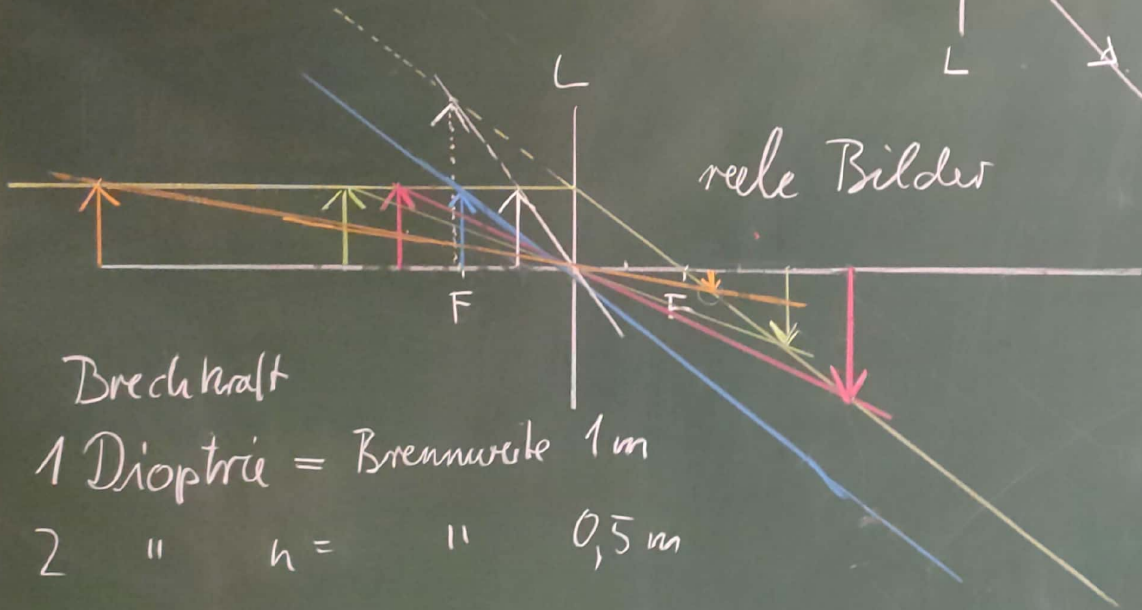 L
L
reele Bilder
F
F
Brechkraft
1 Dioptrie = Brennweite 1 m
2 " n = " 0,5 m